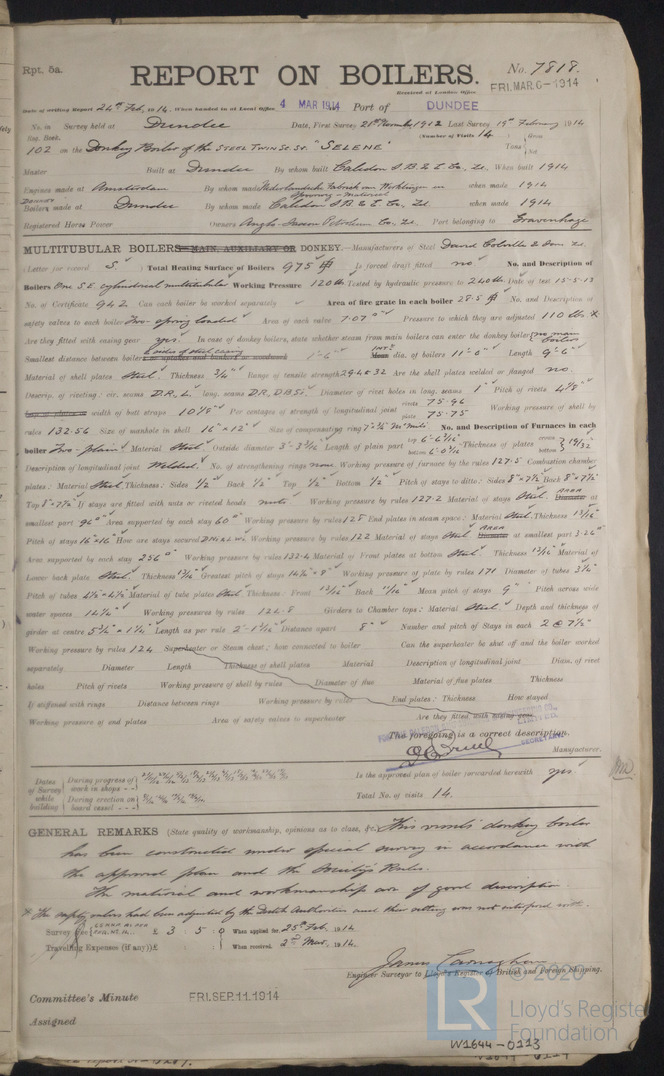 Rpt. 5a.
REPORT ON BOILERS.
No. 7818.
Received at London Office FRI. MAR. 6-1914
Date of writing Report 24th Feb. 1914. When handed in at Local Office 4 MAR 1914 Port of DUNDEE
No. in Survey held at Dundee Date, First Survey 21st November 1912 Last Survey 19th February 1914
Reg. Book. (Number of Visits 14)
102 on the Donkey Boiler of the STEEL TWIN SC. SR. "SELENE" Tons { Gross Net
Master Built at Dundee By whom built Caledon S.B. & E. Co., Ld. When built 1914
Engines made at Amsterdam By whom made Nederlandsche Fabriek van Werktuigen en Spoorweg-Materieel when made 1914
Donkey Boilers made at Dundee By whom made Caledon S.B. & E. Co. Ld. when made 1914
Registered Horse Power Owners Anglo-Saxon Petroleum Co. Ld. Port belonging to Gravenhage
MULTITUBULAR BOILERS MAIN, AUXILIARY OR DONKEY.—Manufacturers of Steel David Colville & Son Ld.
(Letter for record S.) Total Heating Surface of Boilers 975 Is forced draft fitted no No. and Description of
Boilers One S.E. cylindrical multitubular Working Pressure 120 lb Tested by hydraulic pressure to 240 lb Date of test 15-5-13
No. of Certificate 942 Can each boiler be worked separately Area of fire grate in each boiler 28.5 No. and Description of
safety valves to each boiler Two - spring loaded Area of each valve 7.07 Pressure to which they are adjusted 110 lbs x
Are they fitted with easing gear yes. In case of donkey boilers, state whether steam from main boilers can enter the donkey boiler no main boilers
Smallest distance between boilers & sides of steel casing 1'-6" Mean dia. of boilers 11'-0" Length 9'-6"
Material of shell plates Steel. Thickness 3/4" Range of tensile strength 29.4 & 32 Are the shell plates welded or flanged no.
Descrip. of riveting: cir. seams D.R. L. long. seams D.R, D.B.S. Diameter of rivet holes in long. seams 1" Pitch of rivets 4 1/8"
width of butt straps 10 1/8" Per centages of strength of longitudinal joint rivets 75.96 plate 75.75 Working pressure of shell by
rules 132.56 Size of manhole in shell 16" x 12" Size of compensating ring No. and Description of Furnaces in each
boiler Two - plain Material Steel. Outside diameter 3'-3 3/16" Length of plain part top bottom Thickness of plates crown bottom } 19/32
Description of longitudinal joint Welded. No. of strengthening rings none Working pressure of furnace by the rules 127.5 Combustion chamber
plates: Material Steel Thickness: Sides 1/2" Back 1/2" Top 1/2" Bottom 1/2" Pitch of stays to ditto: Sides 8" x 7 1/2" Back 8" x 7 1/2"
Top 8" x 7 1/2" If stays are fitted with nuts or riveted heads nuts Working pressure by rules 127.2 Material of stays Steel. AREA at
smallest part Area supported by each stay 60" Working pressure by rules 128 End plates in steam space: Material Steel Thickness 13/16"
Pitch of stays 16" x 16" How are stays secured D.N. & L.W. Working pressure by rules 122 Material of stays Steel AREA at smallest part 3.26"
Area supported by each stay 256" Working pressure by rules 132.4 Material of Front plates at bottom Steel. Thickness 13/16" Material of
Lower back plate Steel. Thickness 13/16" Greatest pitch of stays 14 1/4" x 8" Working pressure of plate by rules 171 Diameter of tubes 3 1/4"
Pitch of tubes 4 1/2" x 4 1/2" Material of tube plates Steel Thickness: Front 13/16" Back 11/16" Mean pitch of stays 9" Pitch across wide
water spaces 14 1/4" Working pressures by rules 122.8 Girders to Chamber tops: Material Steel Depth and thickness of
girder at centre 5 3/4" x 1 1/4" Length as per rule 2'-1 5/16" Distance apart 8" Number and pitch of Stays in each 2 @ 7 1/2"
Working pressure by rules 124 Superheater or Steam chest; how connected to boiler Can the superheater be shut off and the boiler worked
separately Diameter Length Thickness of shell plates Material Description of longitudinal joint Diam. of rivet
holes Pitch of rivets Working pressure of shell by rules Diameter of flue Material of flue plates Thickness
If stiffened with rings Distance between rings Working pressure by rules End plates: Thickness How stayed
Working pressure of end plates Area of safety valves to superheater Are they fitted with easing gear
The foregoing is a correct description,
SECRETARY
Manufacturer.
Dates of Survey while building { During progress of work in shops - -
During erection on board vessel - - -
Is the approved plan of boiler forwarded herewith yes.
Total No. of visits 14.
GENERAL REMARKS (State quality of workmanship, opinions as to class, &c. This vessel's donkey boiler
has been constructed under special survey in accordance with
the approved plan and the Society's Rules.
The material and workmanship are of good description.
* The safety valves had been adjusted by the Dutch Authorities and their setting was not interfered with.
Survey Fee £ 3 : 5 : 0 When applied for, 25th Feb. 1914
Travelling Expenses (if any) £ : : When received, 2nd Mar. 1914.
James Carnaghan
Engineer Surveyor to Lloyd's Register of British and Foreign Shipping.
Committee's Minute FRI. SEP. 11. 1914
Assigned
© 2020
LR
Lloyd's Register
Foundation
W1644-0113